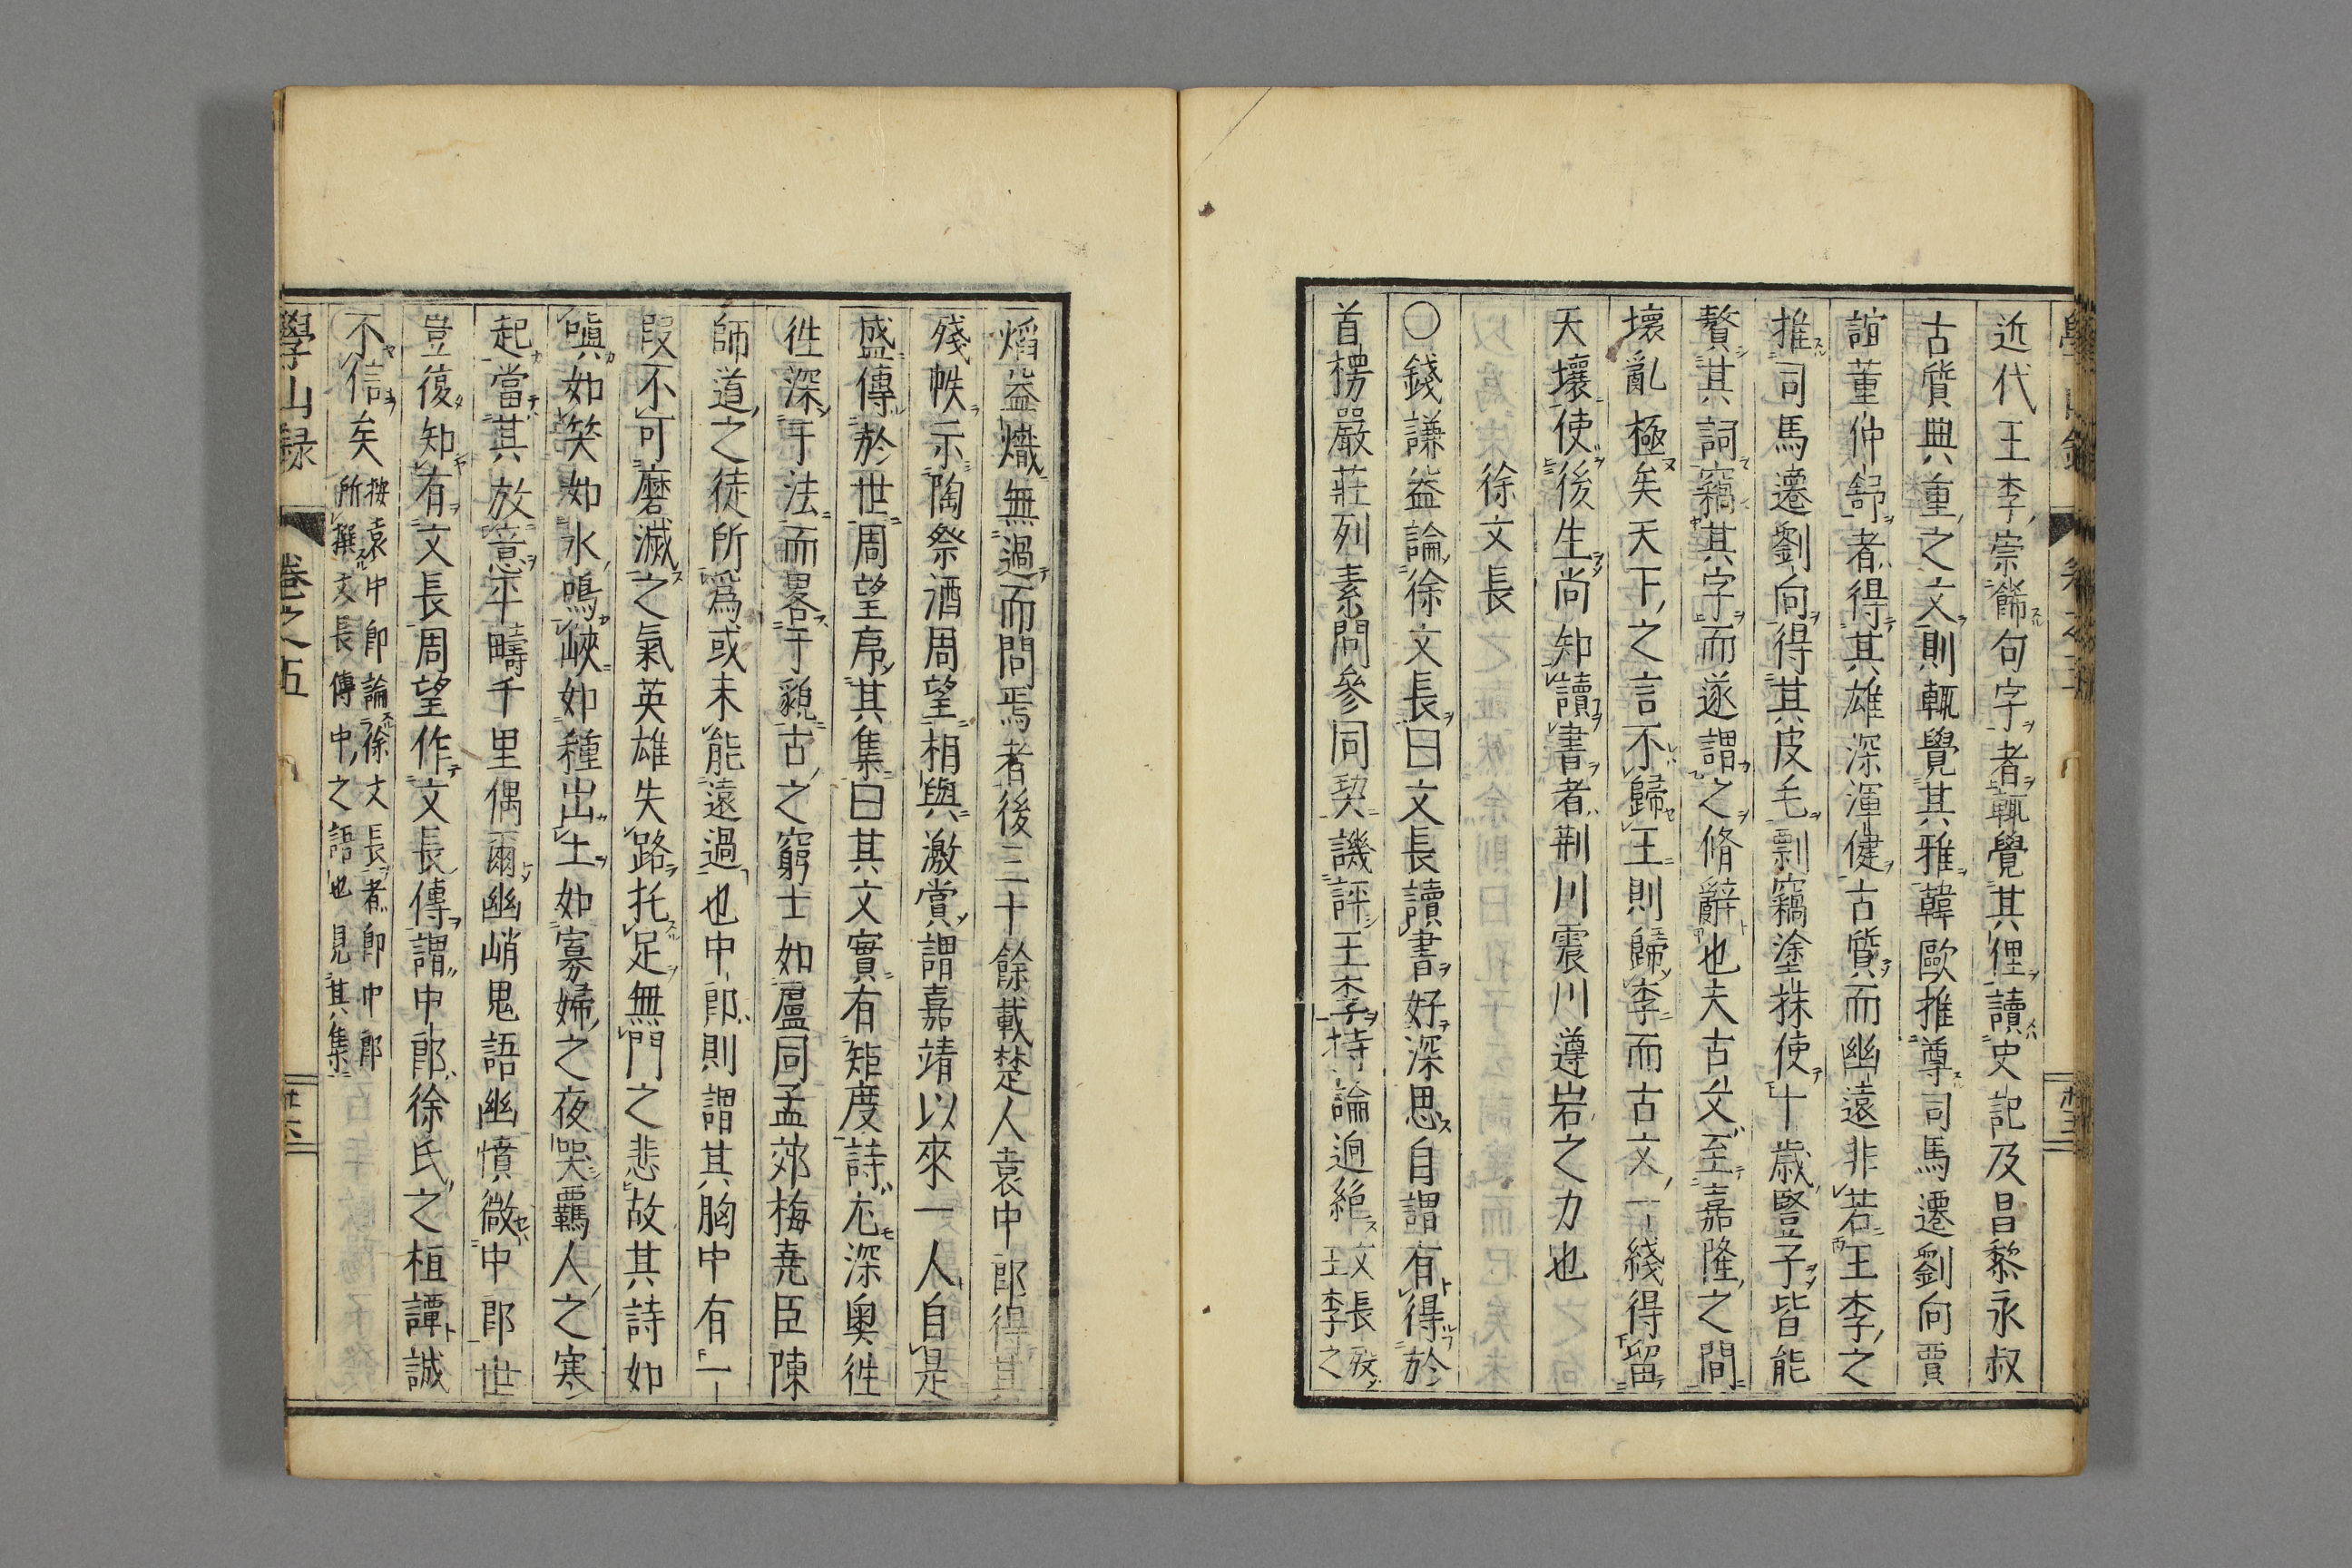 近代王李崇餙句字者輒覺其俚讀史記及昌黎永叔
古質典重之文則輒覺其雅韓歐推尊司馬遷劉向賈
誼董仲舒者得其雄深渾健古質而幽遠非若王李之
推司馬遷劉向得其皮毛剽竊塗抹使十歲豎子皆能
贅其詞竊其字而遂謂之脩辭也夫古文至嘉隆之間
壞亂極矣天下之言不歸王則歸李而古文一線得留
天壤使後生尚知讀書者荆川震川遵岩之力也
徐文長
〇錢謙益論徐文長曰文長讀書好深思自謂有得於
首楞嚴莊列素問參同契譏評王李持論迥絕文長歿王李之
焰益熾無過而問焉者後三十餘載楚人袁中郎得其
殘帙示陶祭酒周望相與激賞謂嘉靖以來一人自是
盛傳於世周望序其集曰其文實有矩度詩尤深奥徃
徃深于法而畧于貌古之窮士如盧同孟郊梅堯臣陳
師道之徒所爲或未能遠過也中郎則謂其胸中有一
段不可磨滅之氣英雄失路托足無門之悲故其詩如
嗔如笑如水鳴峽如種出土如寡婦之夜哭羈人之寒
起當其放意平疇千里偶爾幽峭鬼語幽憤微中郎世
豈復知有文長周望作文長傳謂中郎徐氏之桓譚誠
不信矣
按袁中郎論徐文長者即中郎
所撰文長傳中之語也見其集
學山録
卷之五
廿六